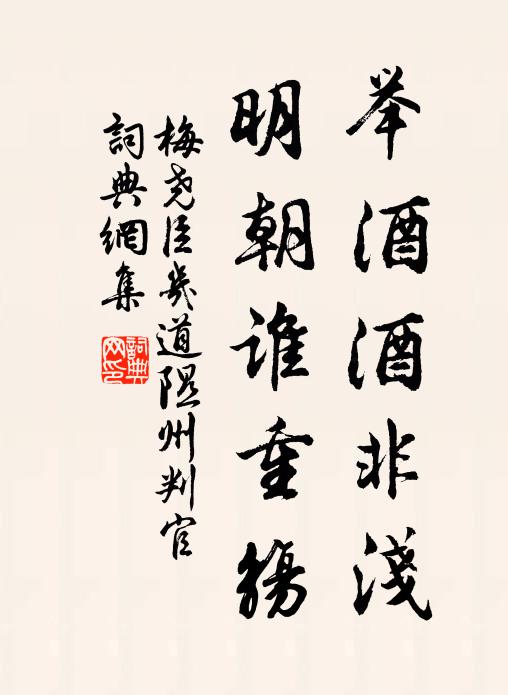 举酒酒非淺
明朝谁重觴
梅尧臣幾道隰州判官
詞典網集
詞典网印